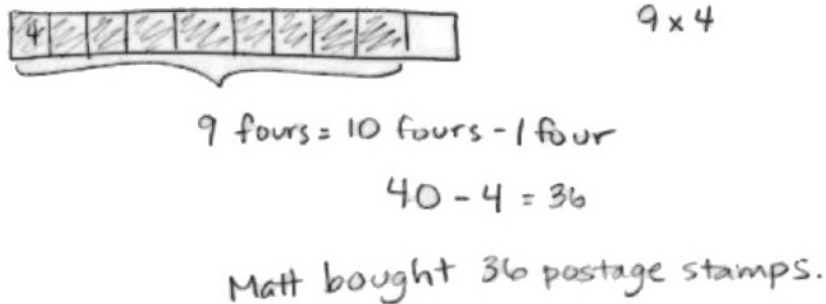 9 x 4
4
9 fours = 10 fours - 1 four
40 - 4 = 36
Matt bought 36 postage stamps.